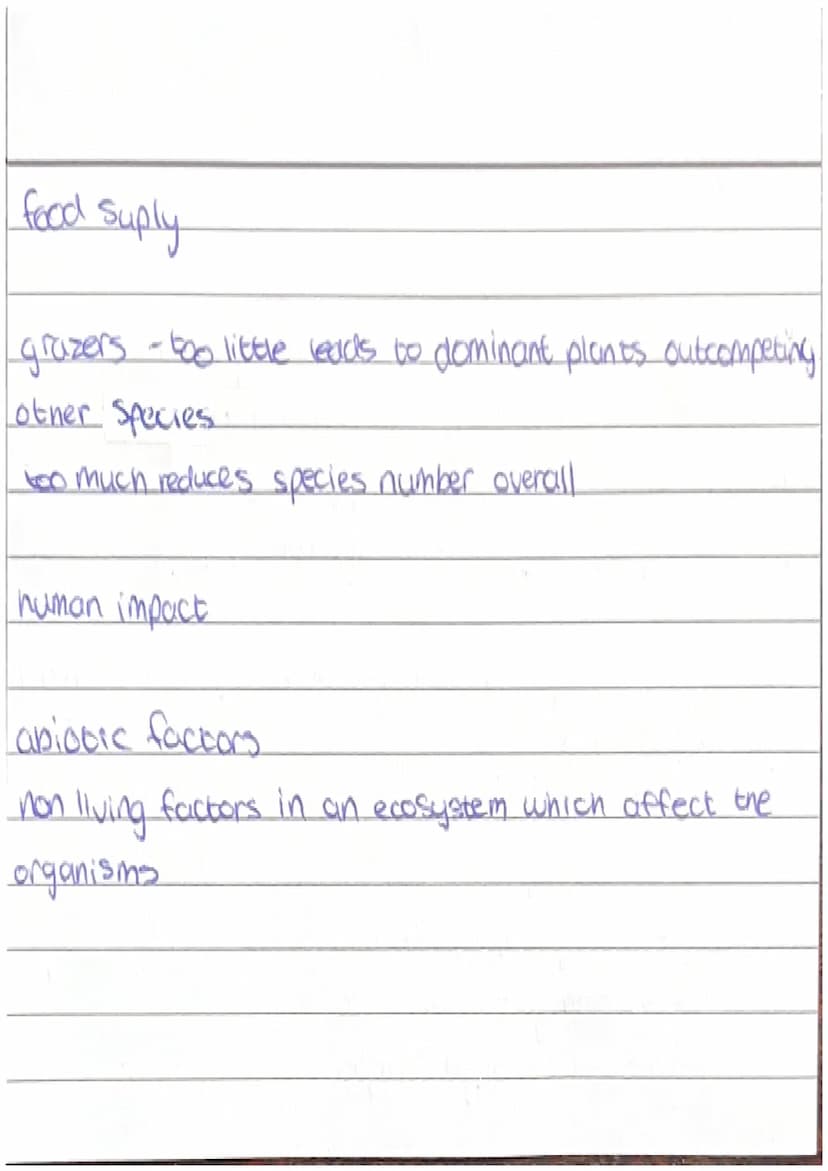 food suply
grazers - too little leads to dominant plants outcompeting
other species
too much reduces species number overall
human impact
abiotic factors
non living factors in an ecosystem which affect the
organisms